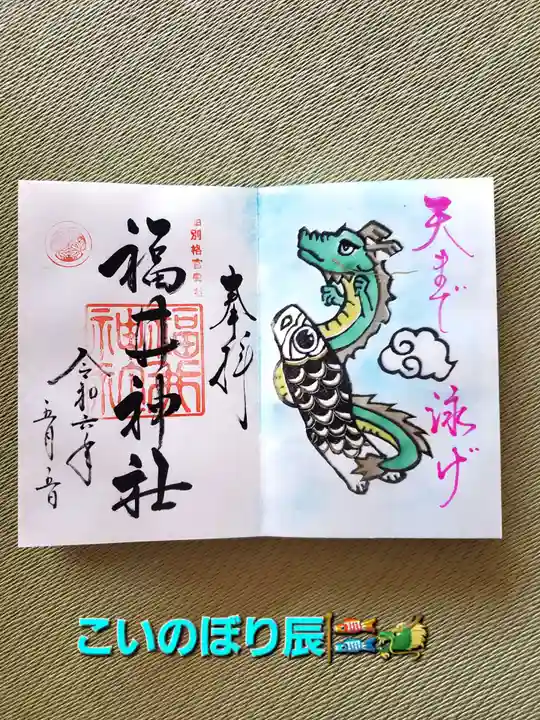 天まで
泳げ
奉拝
旧別格官幣社
福井神社
福井
神社
令和六年
五月五日
こいのぼり辰🎏🐉